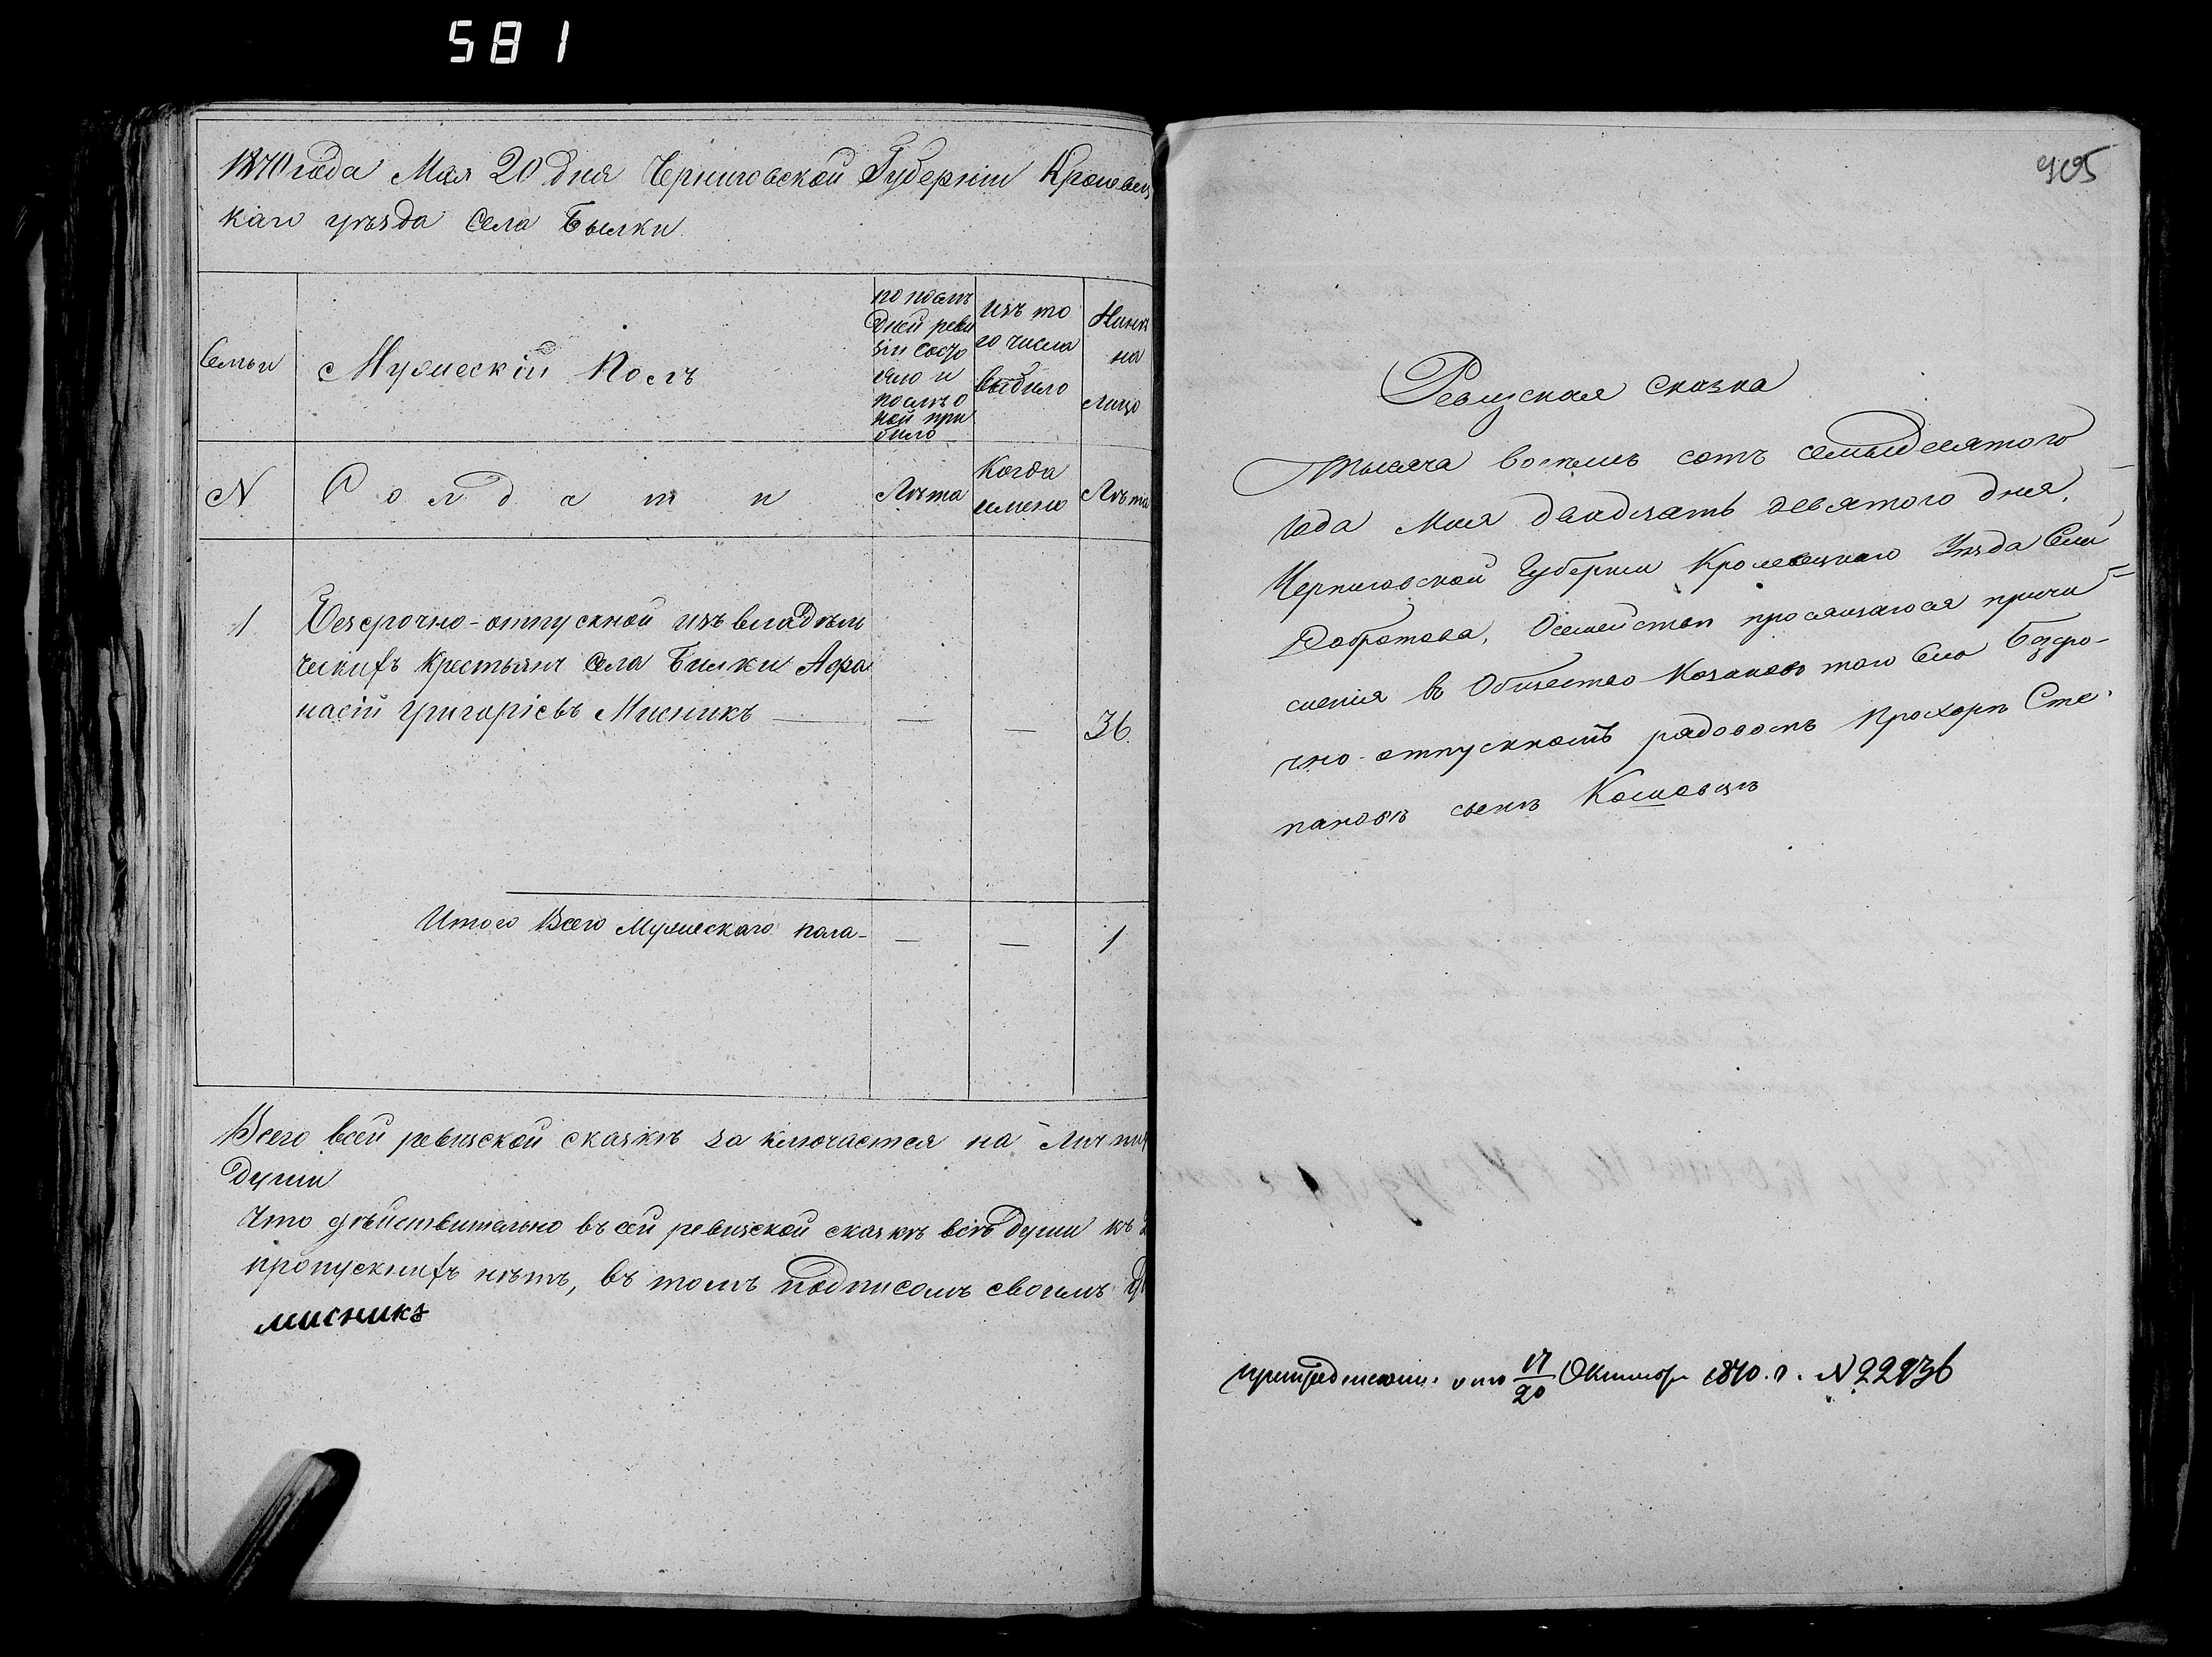 581
1870 года Мая 20 дня Черниговской Губернiи Кролевец
каго уѣзда Села Былки
Семьи
Мужескiй Полъ
по послѣ
дней реви
зiи состо
яло и
послѣ о
ной при
было
изъ то
го числа
выбыло
Нынѣ
на
лицо
N
Солдати
Лѣта
Когда
имено
Лѣта
1
Безсрочно-отпускной изъ владѣль
ческихъ крестьянъ села Билки Афа
насiй Григорiевъ Мисникъ — — — 36.
Итого Всего Мужескаго пола — — — 1
Всего всей ревизской сказкѣ заключается на лич
души
Что дѣйствительно въ сей ревизской сказкѣ всѣ души
пропускнихъ нѣтъ, въ томъ подписомъ своимъ
мисникъ
905
Ревизская сказка
Тысяча восемь сотъ семьдесятого
года Мая двадцать девятого дня,
Черниговской Губернiи Кролевецкаго Уѣзда Села
Добротова, О семействѣ просящагося причи=
сленiя въ Общество Козаковъ того Села Безсро-
чно-отпускномъ рядовомъ Прохорѣ Сте-
пановѣ сынѣ
Октября 1870. г. N 22936